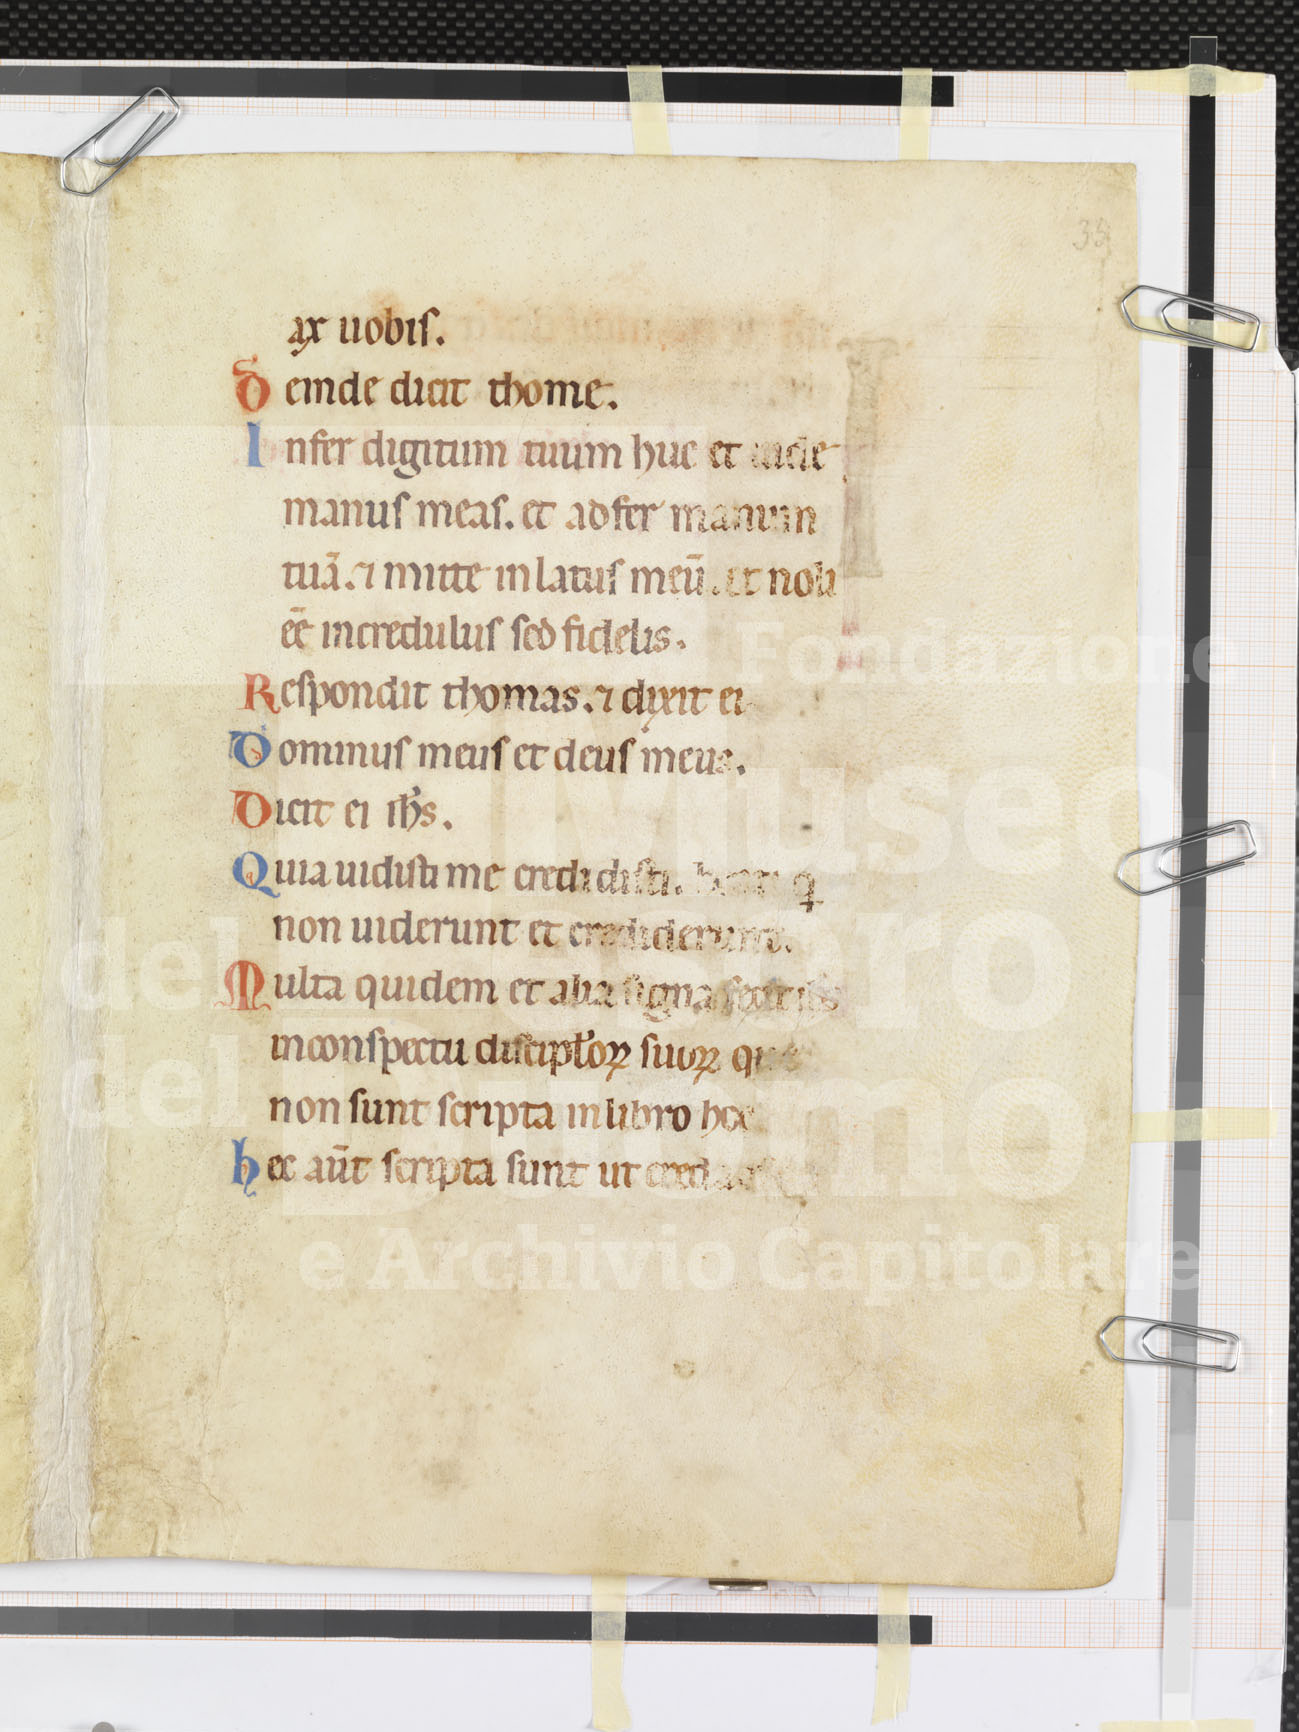 35
ax uobis.
Deinde dicit thome.
Infer digitum tuum huc et uide
manus meas. et adfer manum
tuā. ⁊ mitte in latus meū. et noli
eē incredulus sed fidelis.
Respondit thomas. ⁊ dixit ei
Dominus meus et deus meus.
Dicit ei ihs.
Quia uidisti me credidisti. beati q
non uiderunt et crediderunt.
Multa quidem et alia signa fecit ihs
in conspectu disciploꝝ suoꝝ que
non sunt scripta in libro hoc
hec aūt scripta sunt ut credatis
Fondazione
Museo
dell'Astro
del Duomo
e Archivio Capitolare